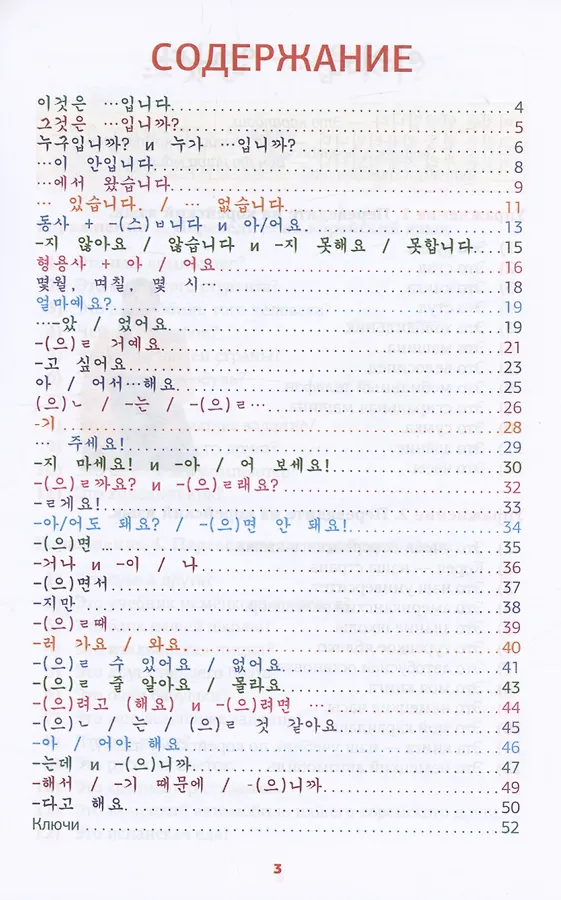 СОДЕРЖАНИЕ
이것은 …입니다 4
그것은 …입니까? 5
누구입니까? и 누가 …입니까? 6
…이 안입니다 8
…에서 왔습니다 9
… 있습니다. / … 없습니다 11
동사 + -(스)ㅂ니다 и 아/어요 13
-지 않아요 / 않습니다 и -지 못해요 / 못합니다 15
형용사 + 아 / 어요 16
몇월, 며칠, 몇 시… 18
얼마예요? 19
…-았 / 었어요 19
-(으)ㄹ 거예요 21
-고 싶어요 23
아 / 어서…해요 25
(으)ㄴ / -는 / -(으)ㄹ… 26
-기 28
… 주세요! 29
-지 마세요! и -아 / 어 보세요! 30
-(으)ㄹ까요? и -(으)ㄹ래요? 32
-ㄹ게요! 33
-아/어도 돼요? / -(으)면 안 돼요! 34
-(으)면 … 35
-거나 и -이 / 나 36
-(으)면서 37
-지만 38
-(으)ㄹ때 39
-러 가요 / 와요 40
-(으)ㄹ 수 있어요 / 없어요 41
-(으)ㄹ 줄 알아요 / 몰라요 43
-(으)려고 (해요) и -(으)려면 … 44
-(으)ㄴ / 는 / (으)ㄹ 것 같아요 45
-아 / 어야 해요 46
-는데 и -(으)니까 47
-해서 / -기 때문에 / -(으)니까 49
-다고 해요 50
Ключи 52
3